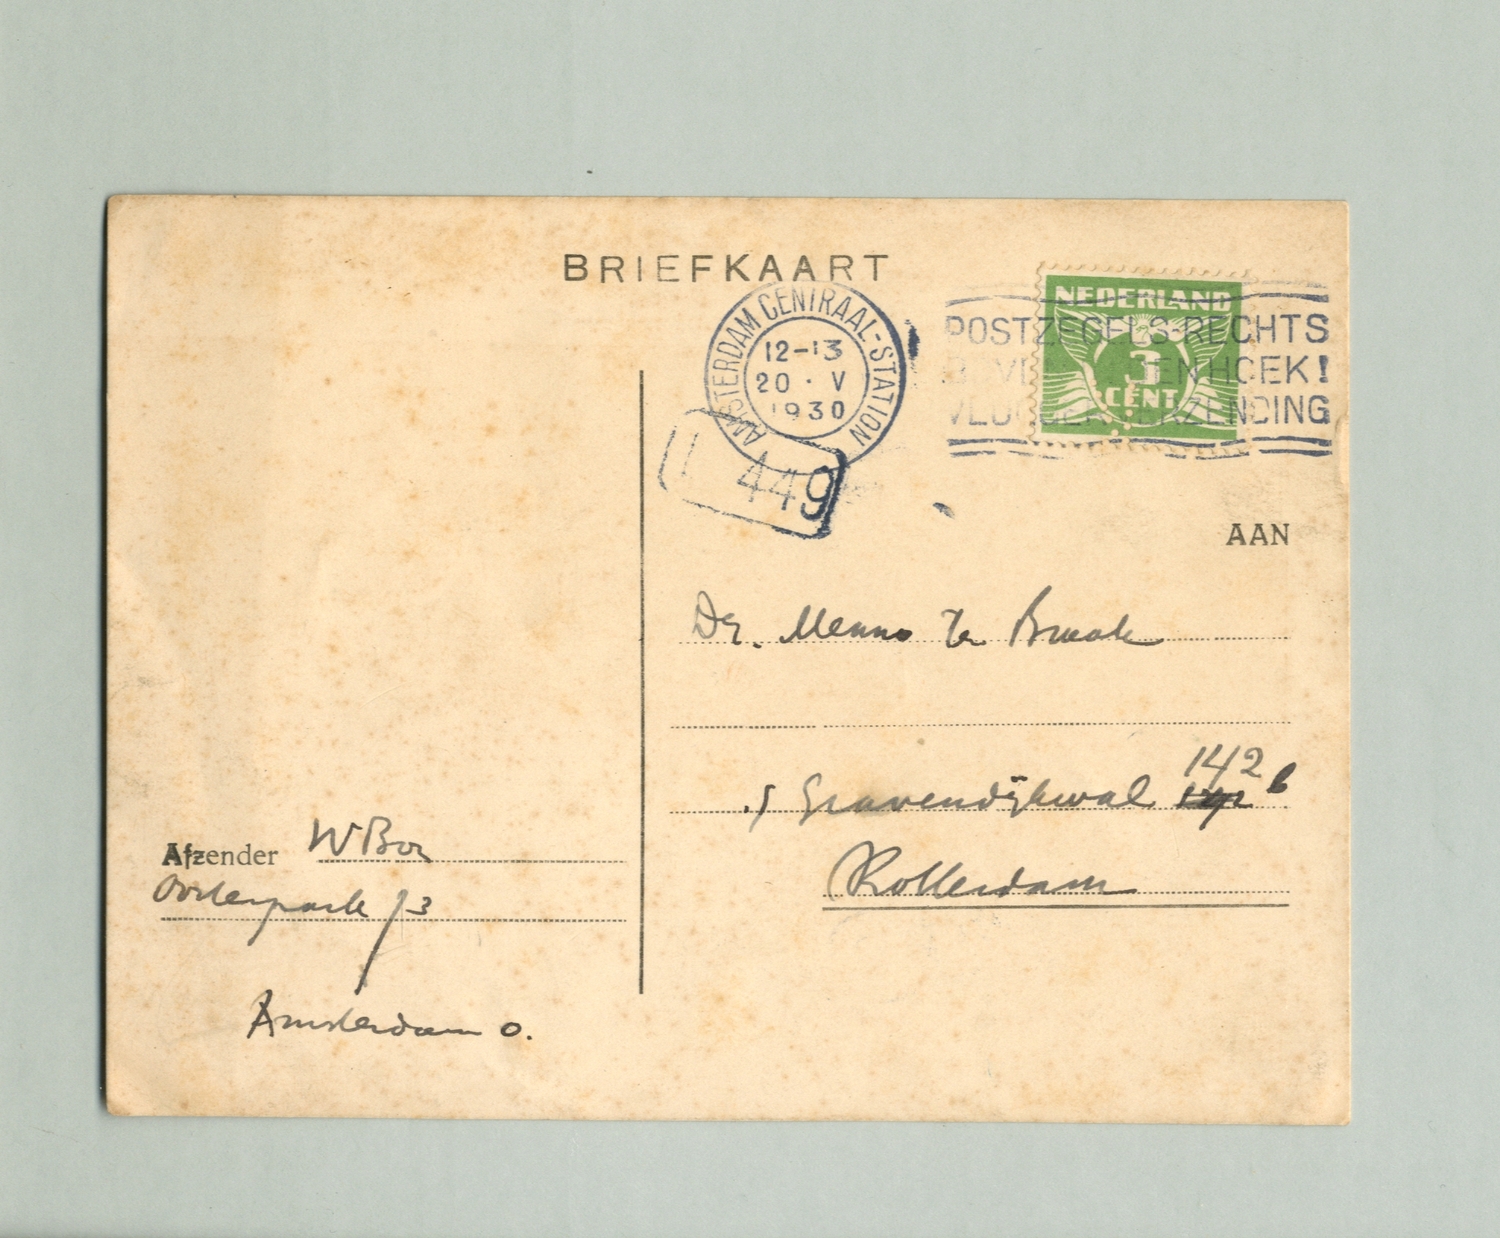 BRIEFKAART
AMSTERDAM CENTRAAL-STATION
12-13
20 · V
1930
449
NEDERLAND
3
CENT
POSTZEGELS RECHTS
BOVENHOEK!
VLUGGER VERZENDING
AAN
Dr. Menno Ter Braak
's Gravendijkwal 142 b
Rotterdam
Afzender W Bor
Oosterpark 73
Amsterdam O.